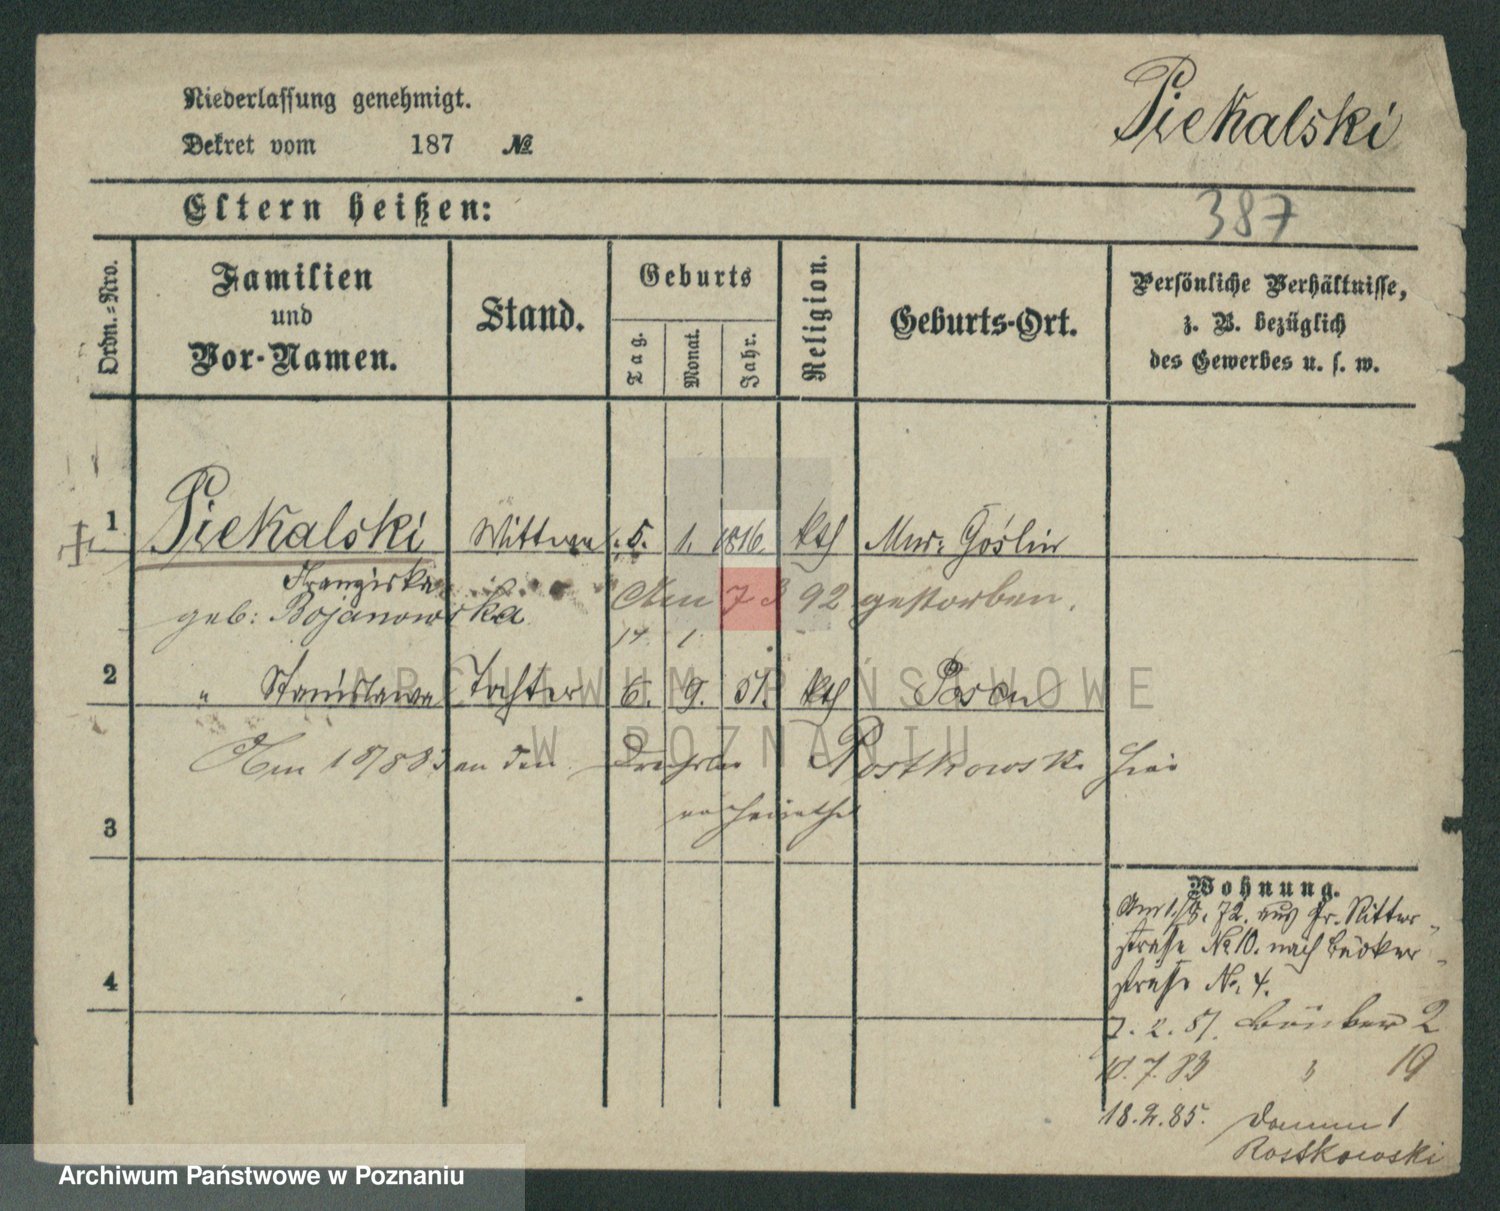 Niederlassung genehmigt.
Piekalski
Dekret vom 187 №
Eltern heißen:
387
Ordn.-Nro.
Familien
und
Vor-Namen.
Stand.
Geburts
Tag.
Monat.
Jahr.
Religion.
Geburts-Ort.
Persönliche Verhältnisse,
z. B. bezüglich
des Gewerbes u. s. w.
1 Piekalski Wittwe 5. 1. 1816. kth Mur: Goślin
Franziska
geb: Bojanowska
Am 7 3 92 gestorben.
14. 1.
2 " Stanislawa Tochter 6. 9. 51. kth Posen
an den Drechsler Rostkowski hier
verheirathet
3
4
Wohnung.
Am 1/8. 72. aus Gr. Ritter-
straße No 10. nach Bäcker-
straße No. 4.
Bäcker 2
10.7.83 " 19
18.2.85. Damm 1
Rostkowski
ARCHIWUM PAŃSTWOWE
W POZNANIU
Archiwum Państwowe w Poznaniu